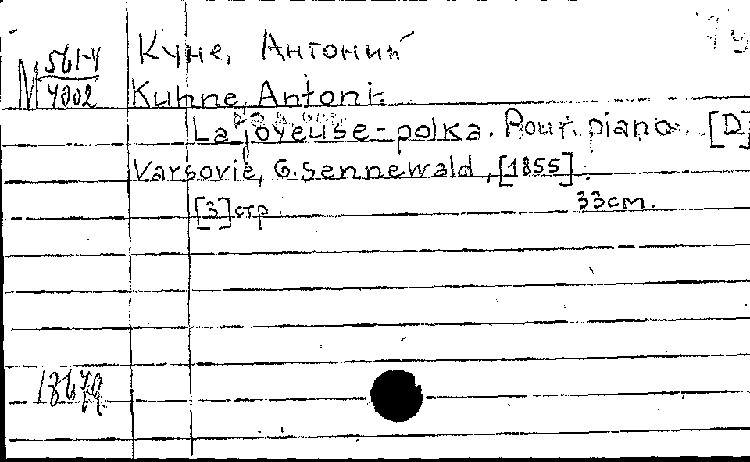 Куне, Антоний
М 561-4
4002
Kuhne, Antoni.
La joyeuse-polka. Pour piano. [D]
Varsovie, G. Sennewald, [1855].
[3] стр. 33 cm.